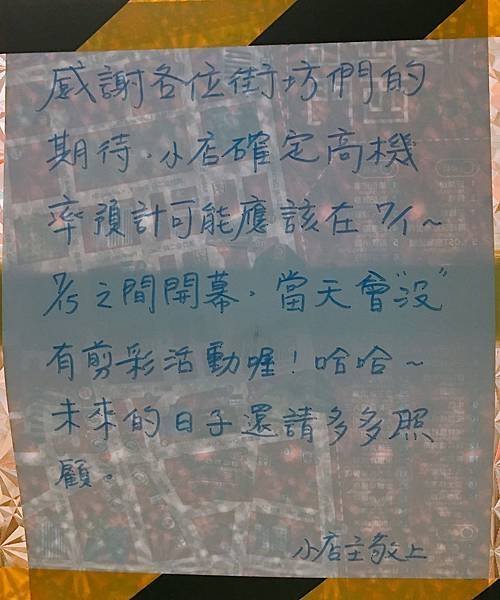 感謝各位街坊們的
期待、小店確定高機
率預計可能應該在 7/1~
7/15 之間開幕。當天會"没"
有剪彩活動喔！哈哈~
未來的日子還請多多照
顧。
小店主敬上